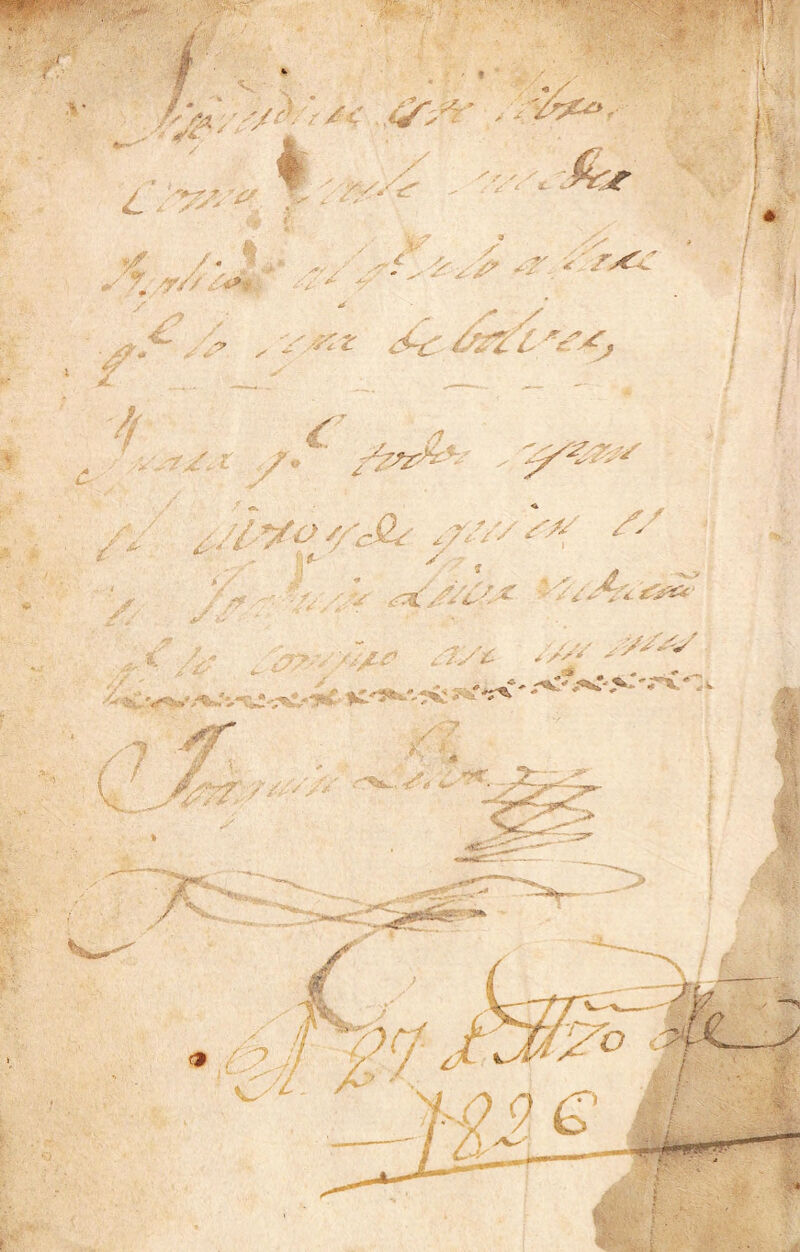 Si seperdiere este libro
como suele suceder
suplico al q.e selo allare
q.e lo sepa debolver,
Ypara q.e todos sepan
el livro y de quien es
es Joaquin Leiva sudueño
q.e lo compro
Joaquin Leiva
A 27 d Mzõ de
1826